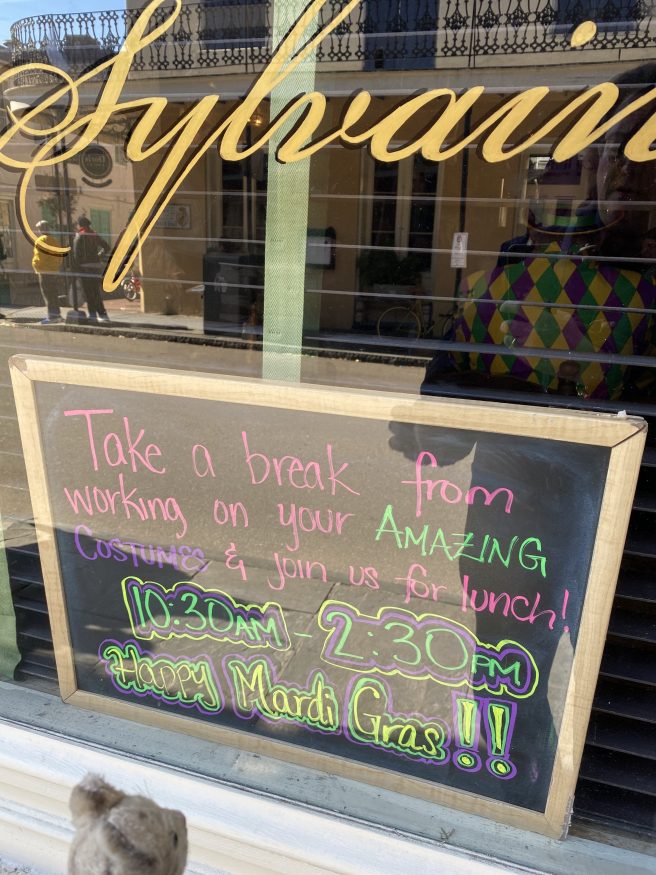 Sylvain
Take a break from
working on your AMAZING
COSTUMES & join us for lunch!
10:30AM - 2:30PM
Happy Mardi Gras!!